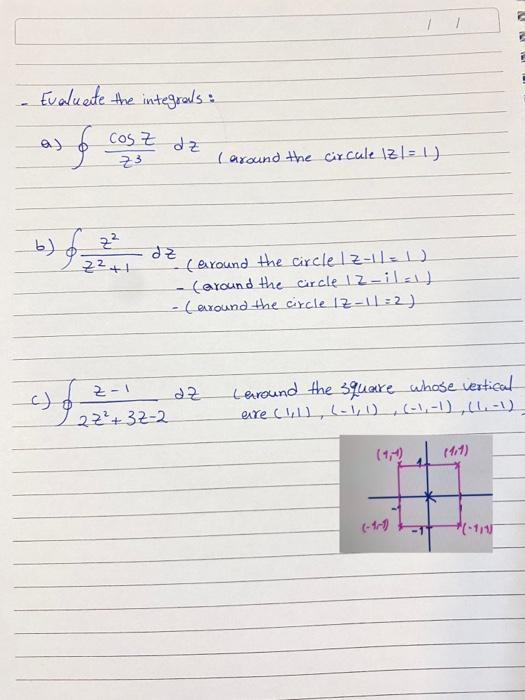 / /
- Evaluate the integrals:
a) ∮ cos z / z³ dz (around the circule |z|=1)
b) ∮ z² / z²+1 dz - (around the circle |z-1|=1)
- (around the circle |z-i|=1)
- (around the circle |z-1|=2)
c) ∮ z-1 / 2z²+3z-2 dz (around the square whose vertical
are (1,1), (-1,1), (-1,-1), (1,-1)
(1,-1) 1 (1,1)
-1
(-1,-1) -1 (-1,1)